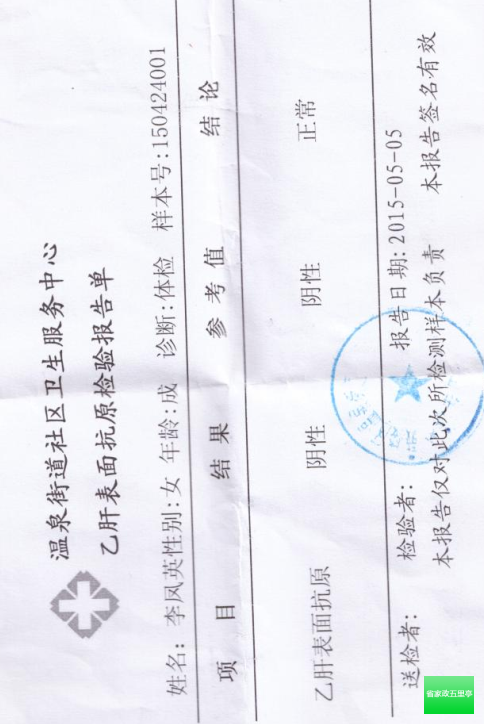 温泉街道社区卫生服务中心
乙肝表面抗原检验报告单
姓名: 李凤英性别:女 年龄:成 诊断:体检 样本号:150424001
项 目 结 果 参 考 值 结 论
乙肝表面抗原 阴性 阴性 正常
送检者: 检验者: 报告日期:2015-05-05
本报告仅对此次所检测样本负责 本报告签名有效
省家政五里亭